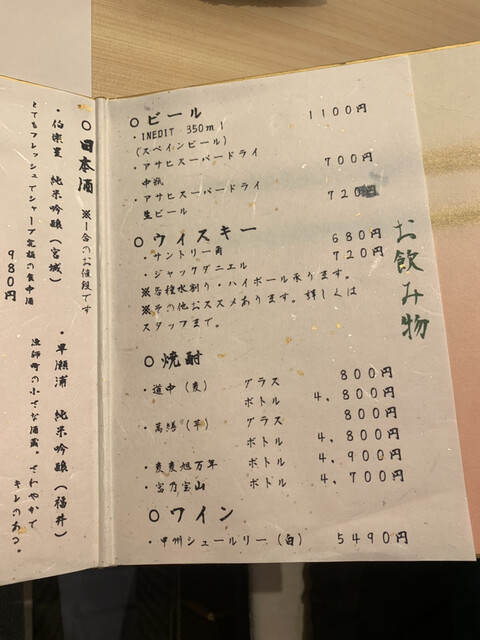 お飲み物
○ビール
・INEDIT 350ml 1100円
(スペインビール)
・アサヒスーパードライ 700円
中瓶
・アサヒスーパードライ 720円
生ビール
○ウィスキー
・サントリー角 680円
・ジャックダニエル 720円
※各種水割り・ハイボール承ります。
※その他おススメあります。詳しくは
スタッフまで。
○焼酎
・道中(麦) グラス 800円
ボトル 4,800円
・萬膳(芋) グラス 800円
ボトル 4,800円
・麦麦旭万年 ボトル 4,900円
・宮乃宝山 ボトル 4,700円
○ワイン
・甲州シュールリー(白) 5490円
○日本酒 ※一合のお値段です
・伯楽星 純米吟醸(宮城)
とてもフレッシュでシャープ究極の食中酒
980円
・早瀬浦 純米吟醸(福井)
漁師町の小さな酒蔵。さわやかで
キレのあ